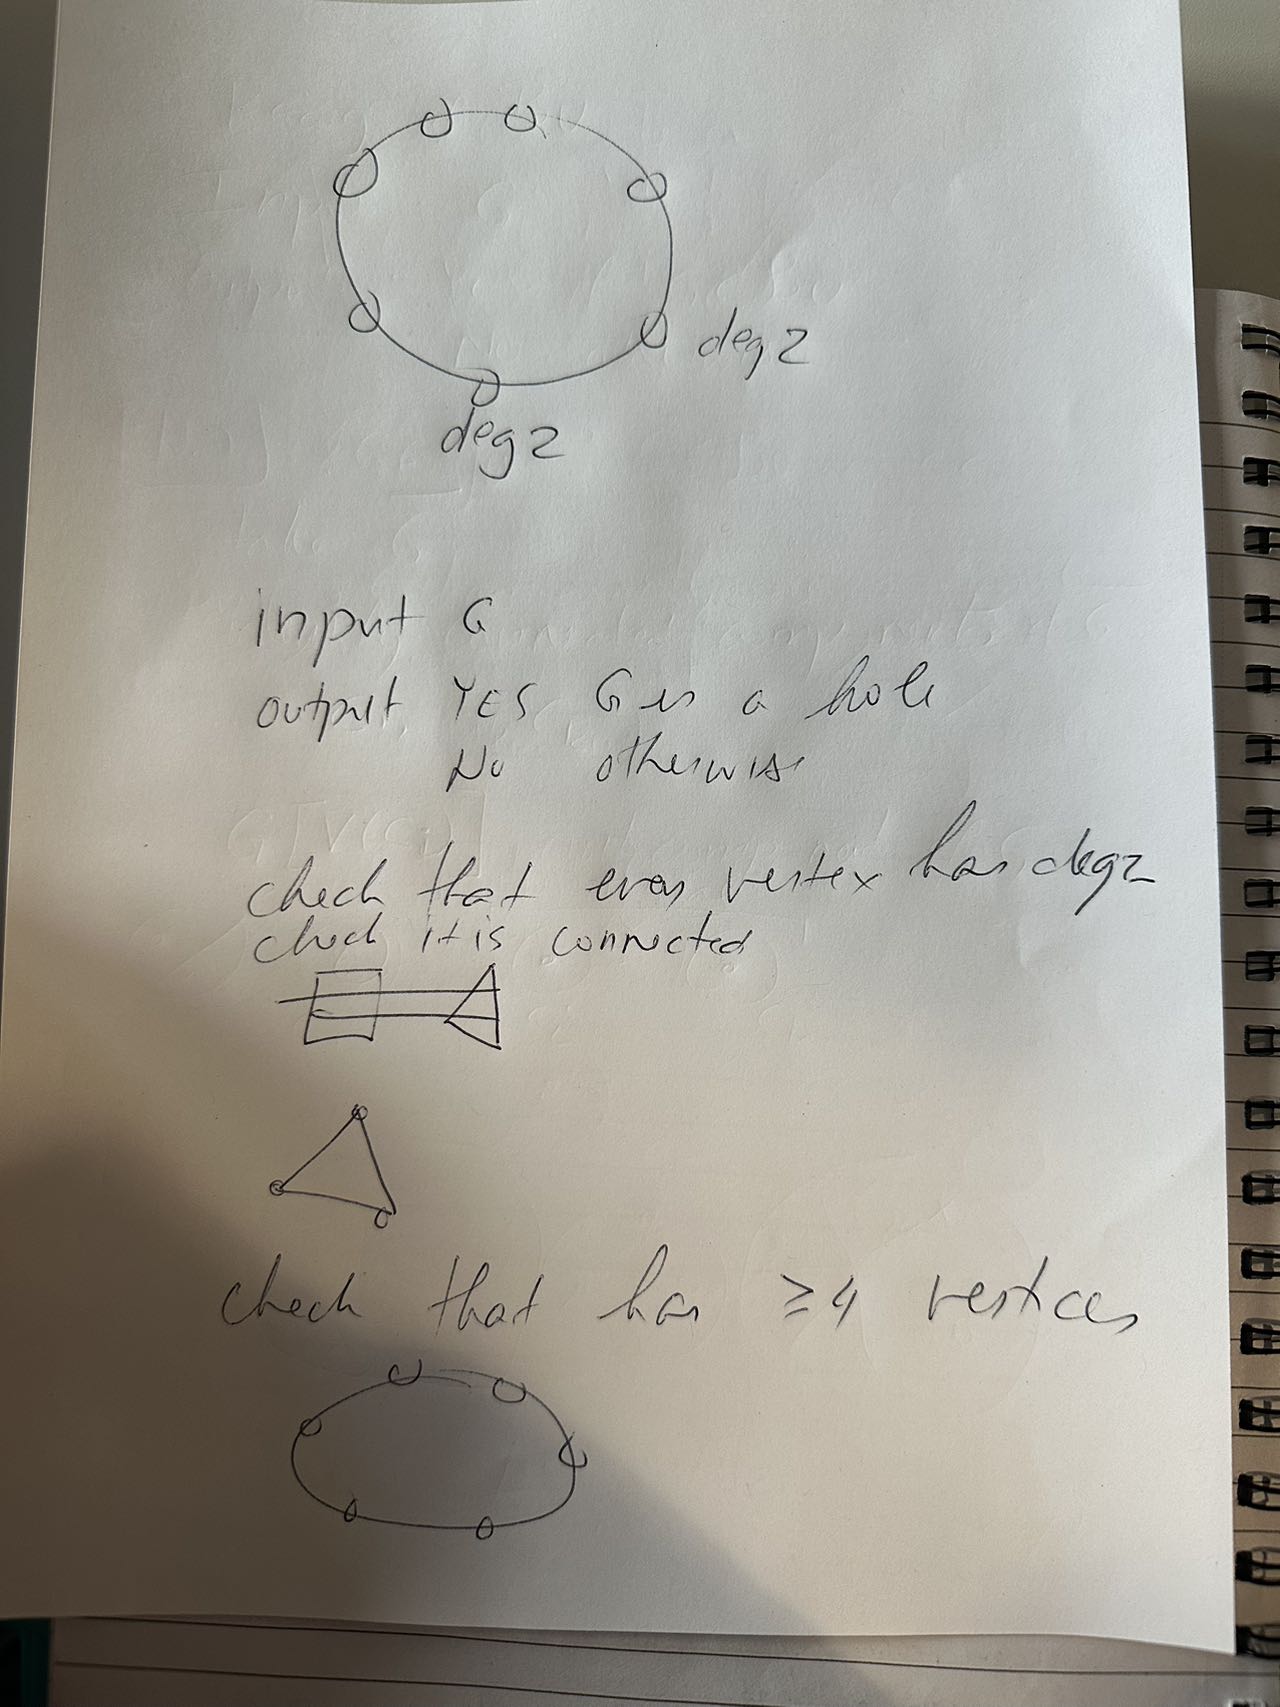 deg 2
deg 2
input G
output YES G is a hole
No otherwise
check that every vertex has deg 2
check it is connected
check that has ≥4 vertices